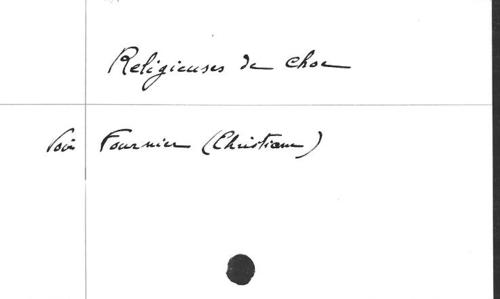 Religieuses de choc
Voir Fournier (Christiane)